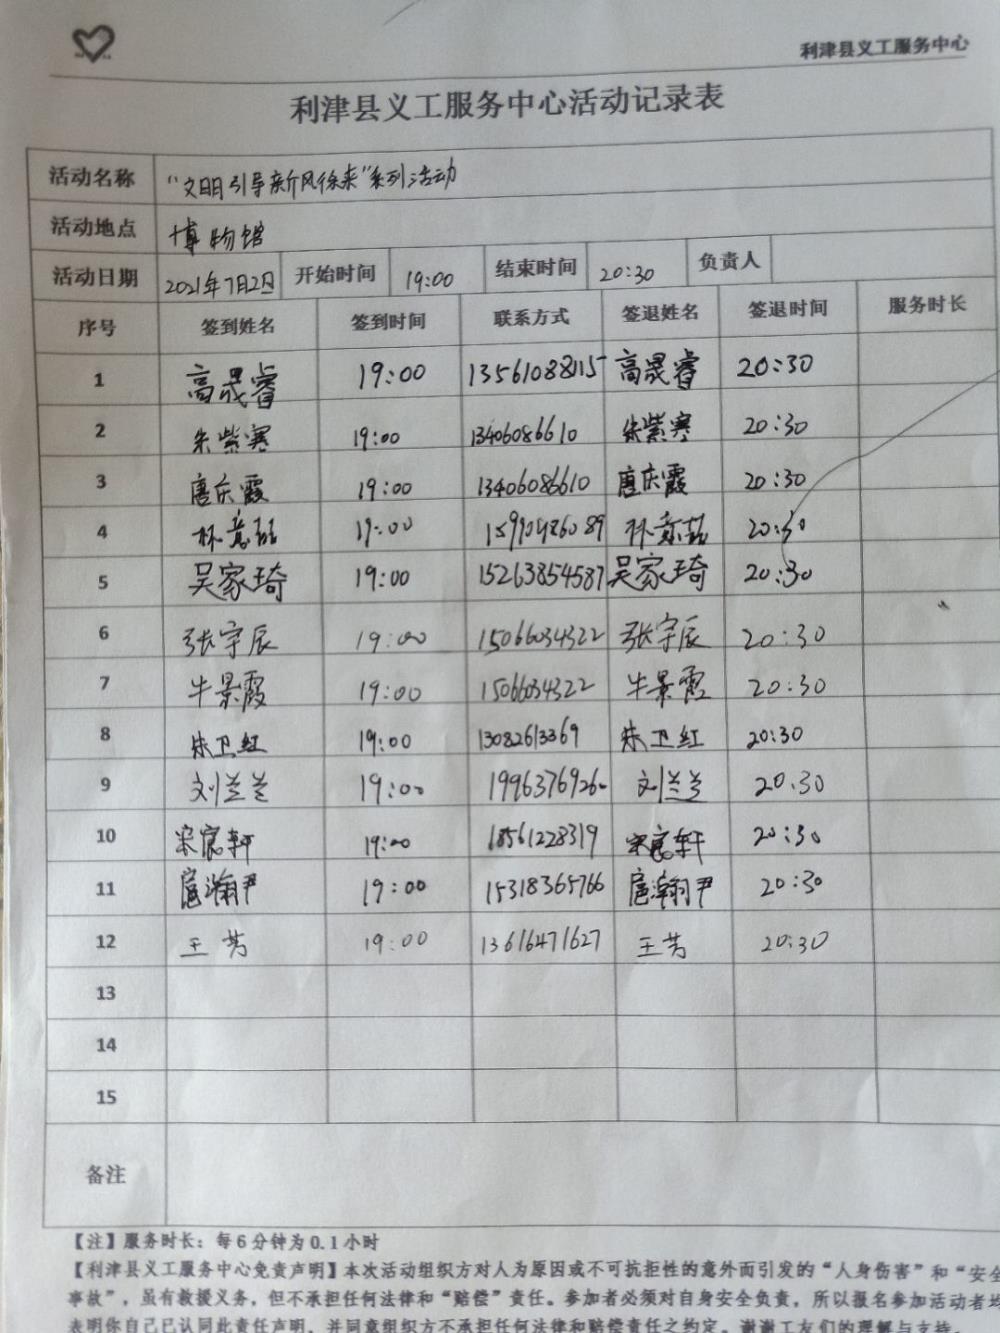 利津县义工服务中心
利津县义工服务中心活动记录表
活动名称 “文明引导新风徐来”系列活动
活动地点 博物馆
活动日期 2021年7月2日 开始时间 19:00 结束时间 20:30 负责人
序号 签到姓名 签到时间 联系方式 签退姓名 签退时间 服务时长
1 高晟睿 19:00 13561088115 高晟睿 20:30
2 朱紫寒 19:00 13406086610 朱紫寒 20:30
3 唐庆霞 19:00 13406086610 唐庆霞 20:30
4 林意茹 19:00 15990486089 林意茹 20:30
5 吴家琦 19:00 15263854587 吴家琦 20:30
6 张宇辰 19:00 15066034322 张宇辰 20:30
7 牛景霞 19:00 15066034322 牛景霞 20:30
8 朱卫红 19:00 13082613369 朱卫红 20:30
9 刘兰兰 19:00 19963769260 刘兰兰 20:30
10 宋宸轩 19:00 18561228319 宋宸轩 20:30
11 扈瀚尹 19:00 15318365766 扈瀚尹 20:30
12 王芳 19:00 13616471627 王芳 20:30
13
14
15
备注
【注】服务时长：每6分钟为0.1小时
【利津县义工服务中心免责声明】本次活动组织方对人为原因或不可抗拒性的意外而引发的“人身伤害”和“安全
事故”，虽有救援义务，但不承担任何法律和“赔偿”责任。参加者必须对自身安全负责，所以报名参加活动者均
表明你自己已认同此责任声明，并同意组织方不承担任何法律和赔偿责任之约定。谢谢工友们的理解与支持。